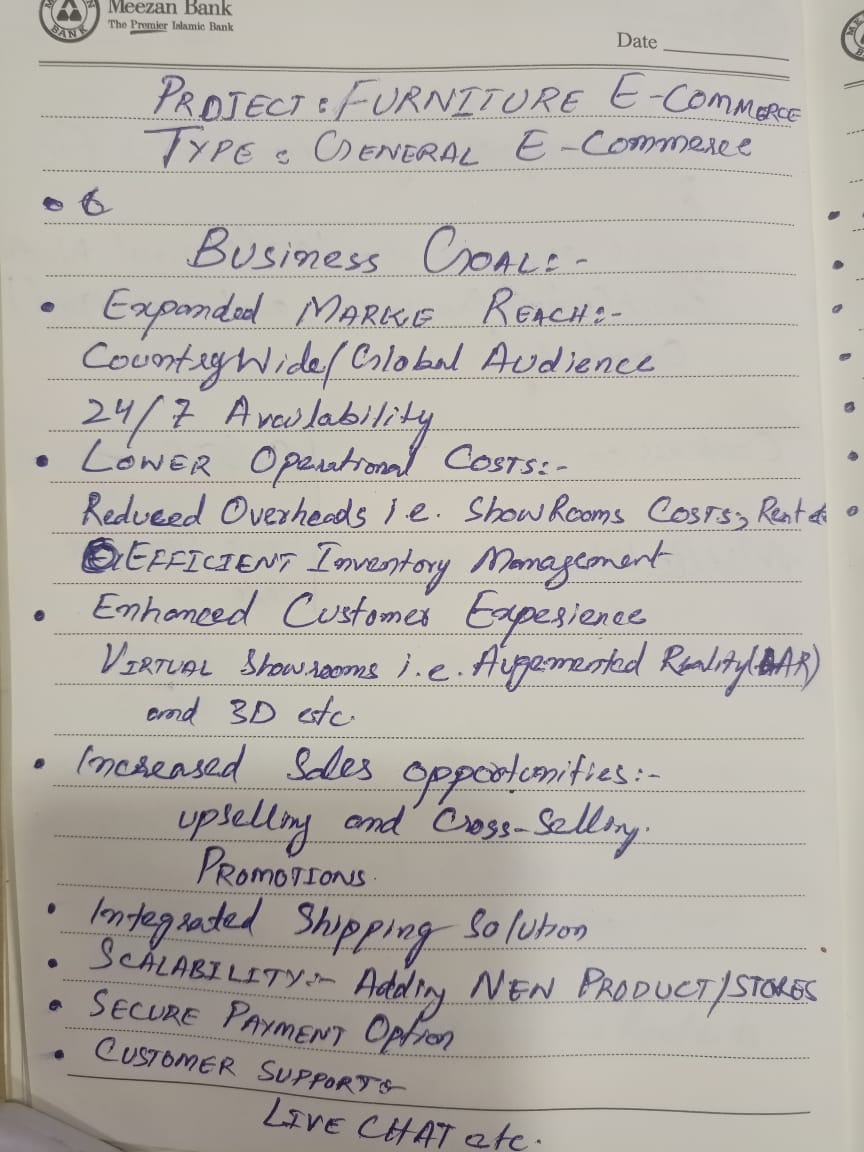 Meezan Bank
The Premier Islamic Bank
BANK
Date
PROJECT : FURNITURE E-COMMERCE
TYPE : GENERAL E-Commerce
• 6
Business GOAL:-
• Expanded MARKE REACH:-
CountryWide/Global Audience
24/7 Availability
• LOWER Operational COSTS:-
Reduced Overheads i.e. ShowRooms COSTS, Rent
EFFICIENT Inventory Management
• Enhanced Customer Experience
VIRTUAL Showrooms i.e. Augemented Reality (AR)
and 3D etc.
• Increased Sales opportunities:-
upselling and Cross-Selling.
PROMOTIONS.
• Integrated Shipping Solution
• SCALABILITY:- Adding NEW PRODUCT/STORES
• SECURE PAYMENT Option
• CUSTOMER SUPPORT:
LIVE CHAT etc.